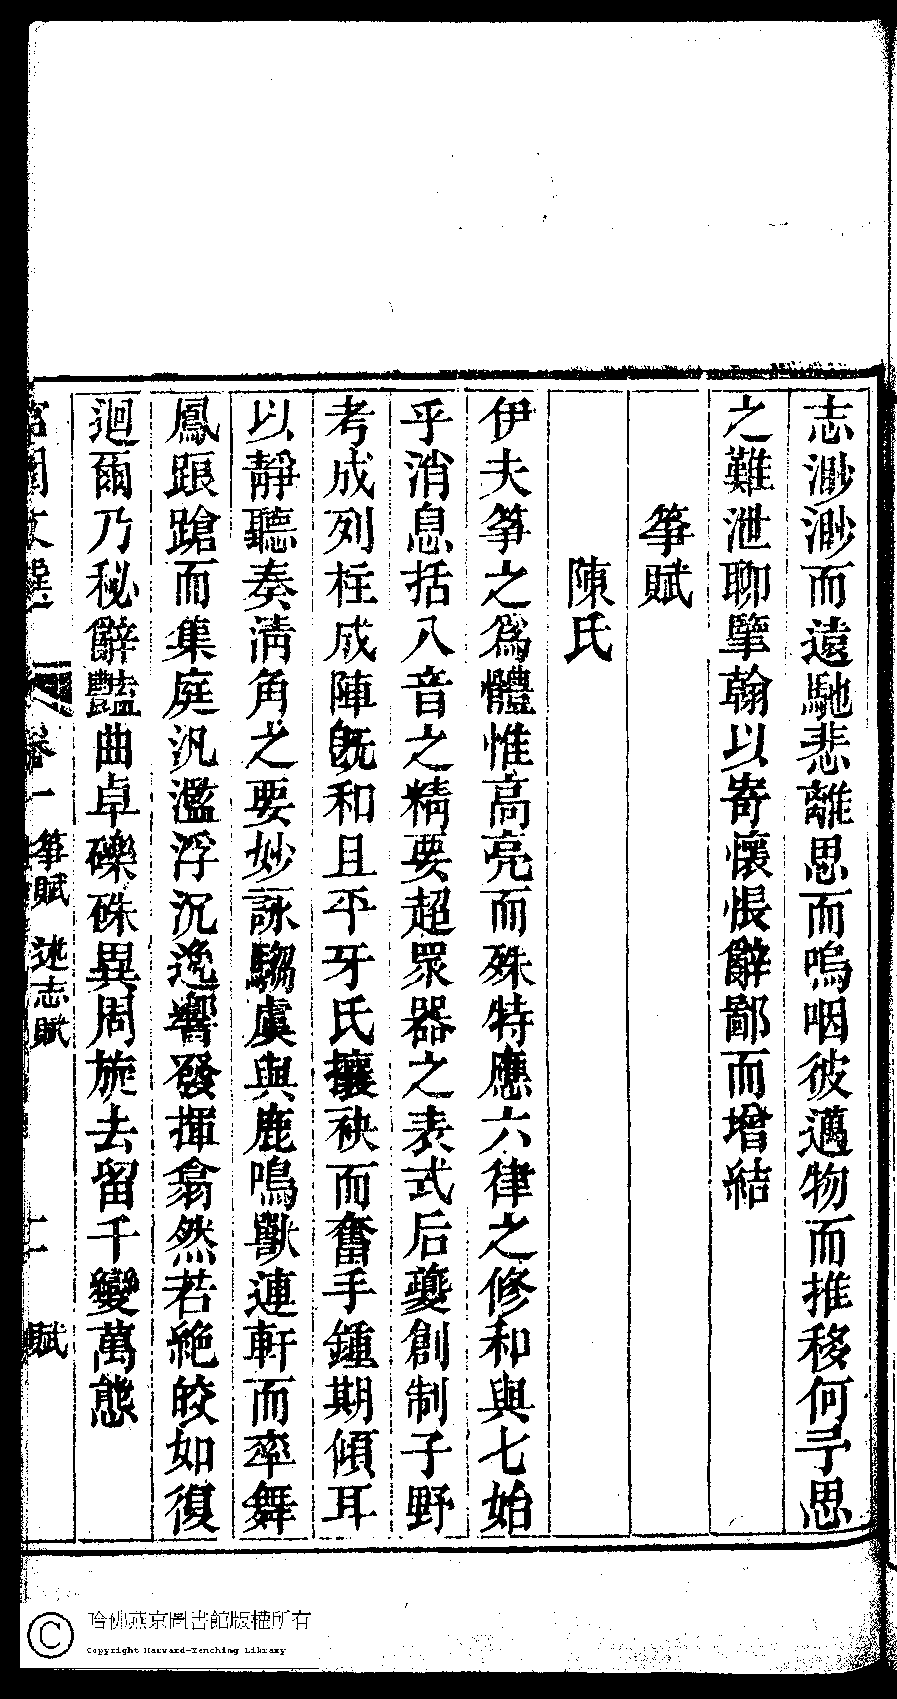 志渺渺而遠馳悲離思而嗚咽彼邁物而推移何予思
之難泄聊擥翰以寄懷悵辭鄙而增結
箏賦
陳氏
伊夫箏之為體惟高亮而殊特應六律之修和與七始
乎消息括八音之精要超眾器之表式后夔創制子野
考成列柱成陣既和且平牙氏攘袂而奮手鍾期傾耳
以靜聽奏清角之要妙詠騶虞與鹿鳴獸連軒而率舞
鳳踉蹌而集庭汎濫浮沉逸響發揮翕然若絕皎如復
迴爾乃秘辭豔曲卓礫硃異周旋去留千變萬態
卷一 箏賦 述志賦 賦
哈佛燕京圖書館版權所有
Copyright Harvard-Yenching Library